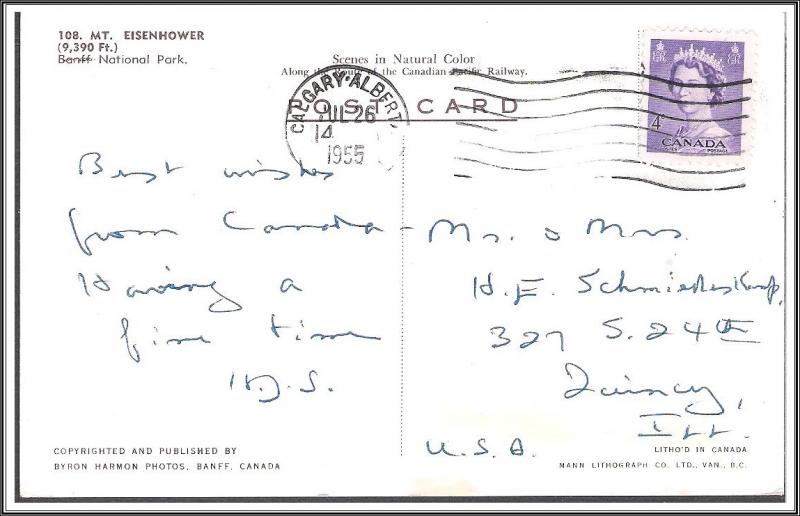 108. MT. EISENHOWER
(9,390 Ft.)
Banff National Park.
Scenes in Natural Color
Along the Route of the Canadian Pacific Railway.
POST CARD
CALGARY·ALBERTA
JUL 26
14
1955
4¢
CANADA
POSTES POSTAGE
Best wishes
from Canada -
Having a
fine time
H.J.S.
Mr. & Mrs.
H. E. Schmiedeskamp,
327 S. 24th
Quincy,
Ill.
U.S.A.
COPYRIGHTED AND PUBLISHED BY
BYRON HARMON PHOTOS, BANFF, CANADA
LITHO'D IN CANADA
MANN LITHOGRAPH CO. LTD., VAN., B.C.